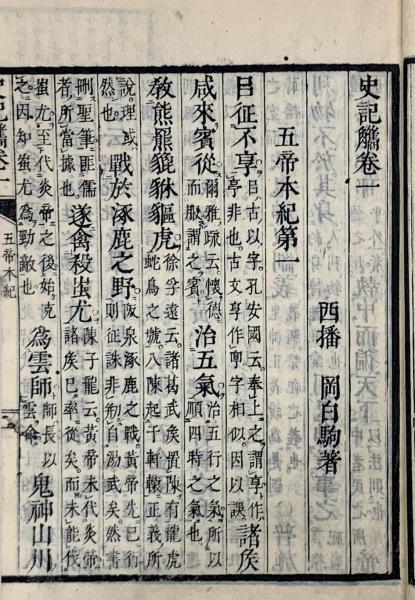 史記觿卷一
西播 岡白駒著
五帝本紀第一
目征不享
目古以字孔安國云奉上之謂享作
亭非也古文享作亯字相似因以誤
諸侯
咸來賓從
爾雅疏云懷德
而服謂之賓
治五氣
治五行之氣所以
順四時之氣也
教熊羆貔貅貙虎
徐孚遠云諸葛武侯置陳有龍虎
蛇鳥之號八陳起于軒轅正義所
說理或
然也
戰於涿鹿之野
阪泉涿鹿之戰黃帝先已行
則征誅非剏自湯武矣然書
刪聖筆匪儒
者所當據也
遂禽殺蚩尤
陳子龍云黃帝未代炎帝
諸侯已率從矣而未能伐
蚩尤至代炎帝之後始克
之因知蚩尤為勁敵也
為雲師
師長以
雲命
鬼神山川
史記觿卷一
五帝本紀